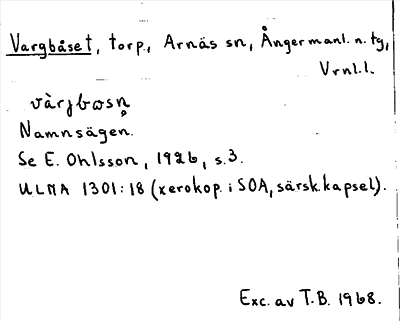 Vargbåset, torp., Arnäs sn, Ångermanl. n. tg,
Vrnl.l.
Namnsägen.
Se E. Ohlsson, 1926, s.3.
ULMA 1301:18 (xerokop. i SOA, särsk. kapsel).
Exc. av T.B. 1968.